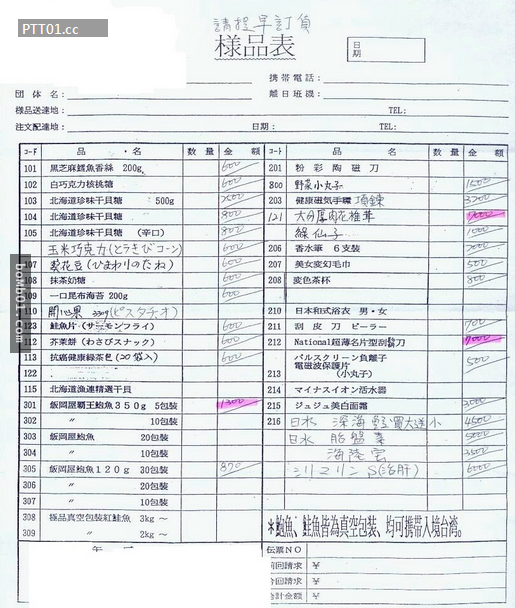 PTT01.cc
請提早訂貨
様品表
日期
携帯電話：
団体名： 離日班機：
様品送達地： TEL：
注文配達地： 日期： TEL：
コード 品・名 数量 金額 コード 品名 数量 金額
101 黒芝麻鱈魚香絲 200g 600 201 粉彩陶磁刀
102 白巧克力核桃糖 600 800 野菜小丸子 1500
103 北海道珍味干貝糖 500g 203 健康磁気手環 項鍊
104 北海道珍味干貝糖 800 121
105 北海道珍味干貝糖 （辛口） 800 1000
玉米巧克力(とうきびコーン) 600 206 香水筆 6支裝
107 葵花豆(ひまわりのたね) 600 207 美女変幻毛巾 500
108 抹茶奶糖 600 208 変色茶杯 800
109 一口昆布海苔 200g 600
110 開心果 (ピスタチオ) 210 日本和式浴衣 男・女
123 鮭魚片(サーモンフライ) 600 211 刮皮刀 ピーラー 700
112 芥茉餅(わさびスナック) 600 212 National超薄名片型刮鬍刀
113 抗癌健康緑茶包(20袋入) 600 213 パルスクリーン負離子電磁波保護片 (小丸子) 500
122 214 マイナスイオン活水器
115 北海道漁連精選干貝 215 ジュジュ美白面霜 3000
301 飯岡屋覇王鮑魚350g 5包裝 1300 216 日水 深海 買大送小 4500
302 〃 10包裝 日水 胎盤素 5000
303 飯岡屋鮑魚 20包裝 海陸雲 3500
304 〃 10包裝
305 飯岡屋鮑魚120g 30包裝 870 シリマリンS(治肝) 6000
306 〃 20包裝
307 〃 10包裝
308 極品真空包裝紅鮭魚 3kg～
309 〃 2kg～
*鮑魚、鮭魚皆為真空包裝、均可携帯入境台湾。
伝票NO
前回請求 ￥
今回請求 ￥
合計金額 ￥
bomb01.com